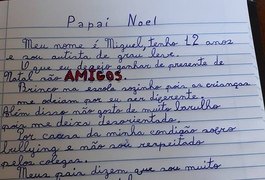 Papai Noel
Meu nome é Miguel, tenho 12 anos
e sou autista de grau leve.
O que eu desejo ganhar de presente de
Natal são AMIGOS.
Brinco na escola sozinho pois as crianças
me odeiam por eu ser diferente.
Além disso não gosto de muito barulho
pois me deixa desorientado.
Por causa da minha condição sofro
bullying e não sou respeitado
pelos colegas.
Meus pais dizem que sou muito